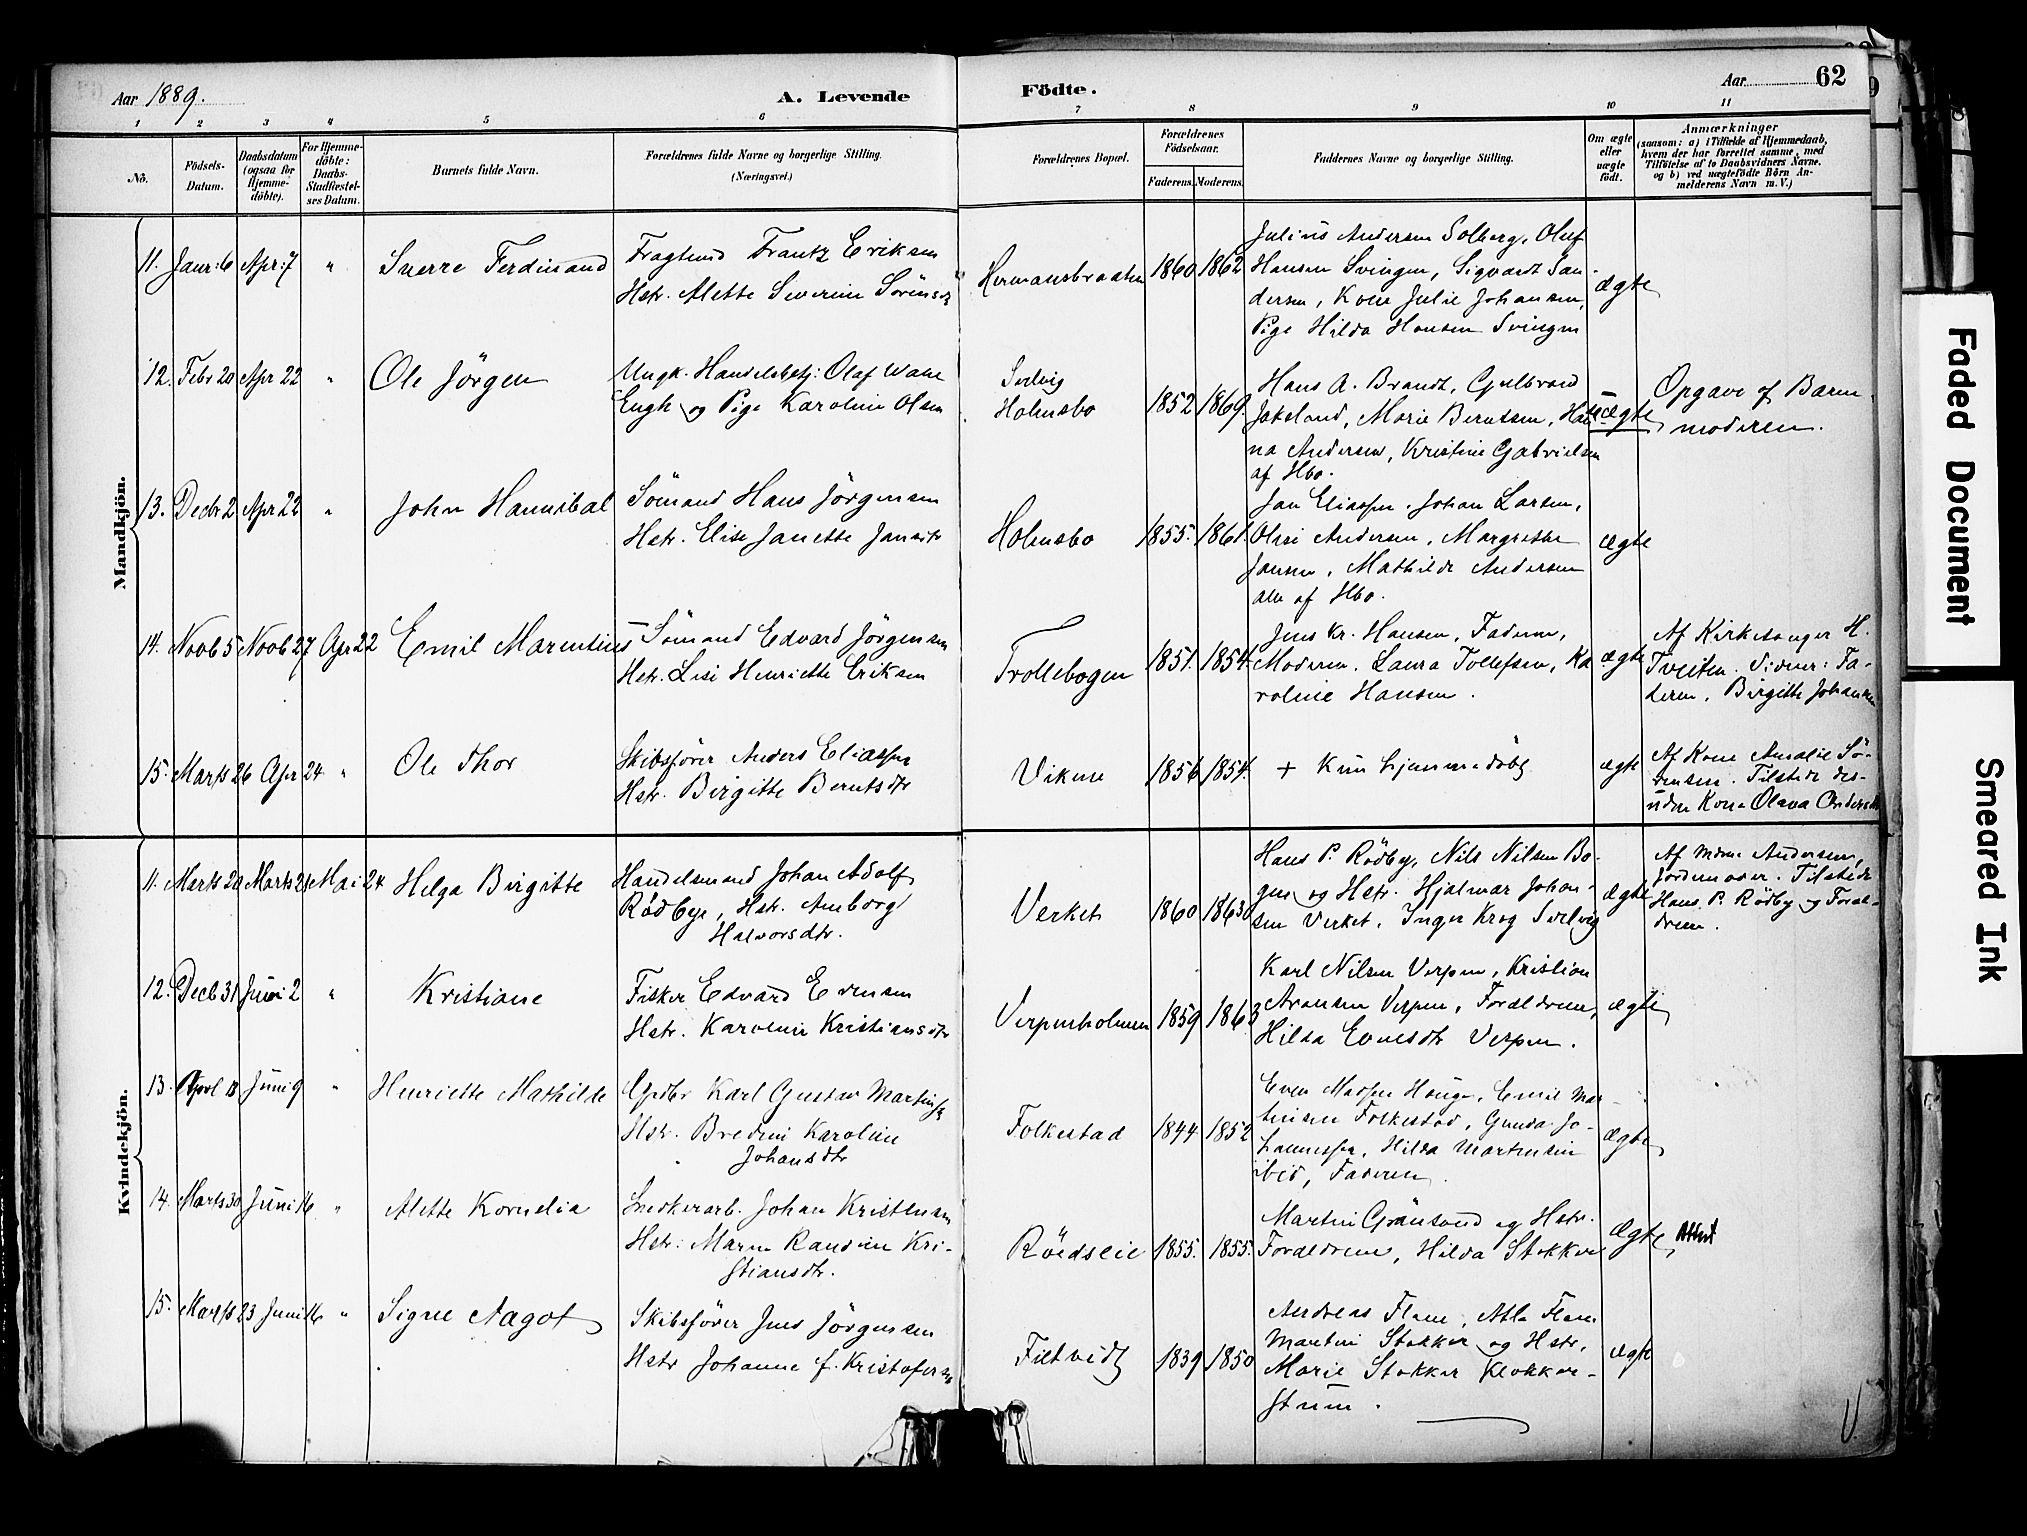 Aar 1889.
A. Levende
Födte.
Aar
62
1 2 3 4 5 6 7 8 9 10 11
No.
Födsels-Datum.
Daabsdatum (ogsaa for Hjemme-döbte).
For Hjemme-döbte: Daabs-Stadfæstel-ses Datum.
Barnets fulde Navn.
Forældrenes fulde Navne og borgerlige Stilling.
(Næringsvei.)
Forældrenes Bopæl.
Forældrenes Födselsaar.
Faderens. Moderens.
Faddernes Navne og borgerlige Stilling.
Om ægte eller uægte födt.
Anmærkninger
(saasom: a) i Tilfælde af Hjemmedaab,
hvem der har forrettet samme, med
Tilföielse af to Daabsvidners Navne.
og b) ved uægtefödte Börn An-
melderens Navn m. V.)
Mandkjön.
11. Janr: 6 Apr: 7 " Sverre Ferdinand
Fragtmd Frantz Eriksen
Hstr. Alette Severine Sörensdtr
Hermansbraaten 1860 1862
Julius Andersen Solberg, Oluf
Hansen Svingen, Sigvart San-
dersen, Kone Julie Johansen,
Pige Hilda Hansen Svingen
ægte
12. Febr 20 Apr 22 " Ole Jörgen
Ungk. Handelsbetj: Olaf
Engh og Pige Karoline Olsen
Svelvig
Holmsbo 1852 1869.
Hans A. Brandt, Gulbrand
Jokeland, Marie Berntsen, Han
na Andersen, Kristine Gabrielsen
af Hbo.
uægte
Opgave af Barne
moderen.
13. Decbr 2 Apr 22 " John Hannibal
Sömand Hans Jörgensen
Hstr. Elise Janette Jansdtr
Holmsbo 1855. 1861.
Jan Eliassen. Johan Larsen,
Andersen, Margrethe
Jansen, Mathilde Andersen
alle af Hbo.
ægte
14. Novb 5 Novb 27 Apr 22 Emil Marentius
Sömand Edvard Jörgensen
Hstr. Lise Henriette Eriksen
Trollebogen 1851. 1854.
Jens Kr. Hansen, Faderen,
Moderen. Laura Tollefsen, Ka
roline Hansen.
ægte
Af Kirkesanger H.
Tveiten. Vidner: Fa-
deren, Birgitte Johansen
15. Marts 26 Apr 24 " Ole Thor
Skibsförer Anders Eliassen
Hstr. Birgitte Berntsdtr
Vikene 1856 1854.
+ Kun hjemmedöbt
ægte
Af Kone Amalie Sö-
rensen. Tilstede des-
uden Kone Olava Andersen
Kvindekjön.
11. Marts 20 Marts 21 Mai 24 Helga Birgitte
Handelsmand Johan Adolf
Rödbye, Hstr. Amborg
Halvorsdtr.
Verket 1860 1863
Hans P. Rödby, Nils Nilsen Bo-
gen og Hstr. Hjalmar Johan-
sen Verket, Inger Krog Svelvig
ægte
Af Andersen,
Jordemoder. Tilstede
Hans P. Rödby og Foræl-
drene.
12. Decb 31 Juni 2 " Kristiane
Fisker Edvard Evensen
Hstr. Karoline Kristiansdtr
Verpenholmen 1859 1863
Karl Nilsen Verpen, Kristian
Aronsen Verpen, Forældrene,
Hilda Evensdtr Verpen.
ægte
13. April 13 Juni 9 " Henriette Mathilde
Gpdbr Karl Gustav Martinsen
Hstr. Bredine Karoline
Johansdtr
Folkestad 1844 1852
Even Matsen Hauge, Emil Mar-
tinsen Folkestad, Gunda Jo-
hannessen, Hilda Martinsen
ibid, Faderen.
ægte
14. Marts 30 Juni 16 " Alette Kornelia
Snedkerarb. Johan Kristensen
Hstr: Maren Randine Kri-
stiansdtr.
Röedseie 1855. 1855.
Martin Grönsand og Hstr.
Forældrene, Hilda Stokker
ægte
Attest
15. Marts 23 Juni 16 " Signe Aagot
Skibsförer Jens Jörgensen
Hstr Johanne f. Kristofersen
Filtvedt 1839 1850
Andreas Flaen, Atle Flaen
Martin Stokker og Hstr,
Marie Stokker Klokker-
stuen.
ægte
Faded Document
Smeared Ink